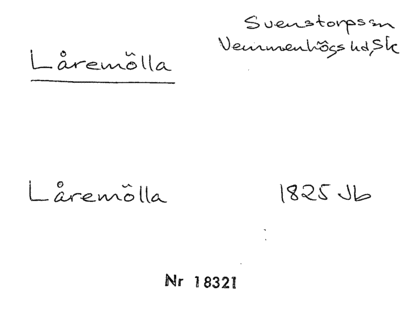 Svenstorps sn
Vemmenhögs hd, Sk
Låremölla
Låremölla 1825 Jb
Nr 18321